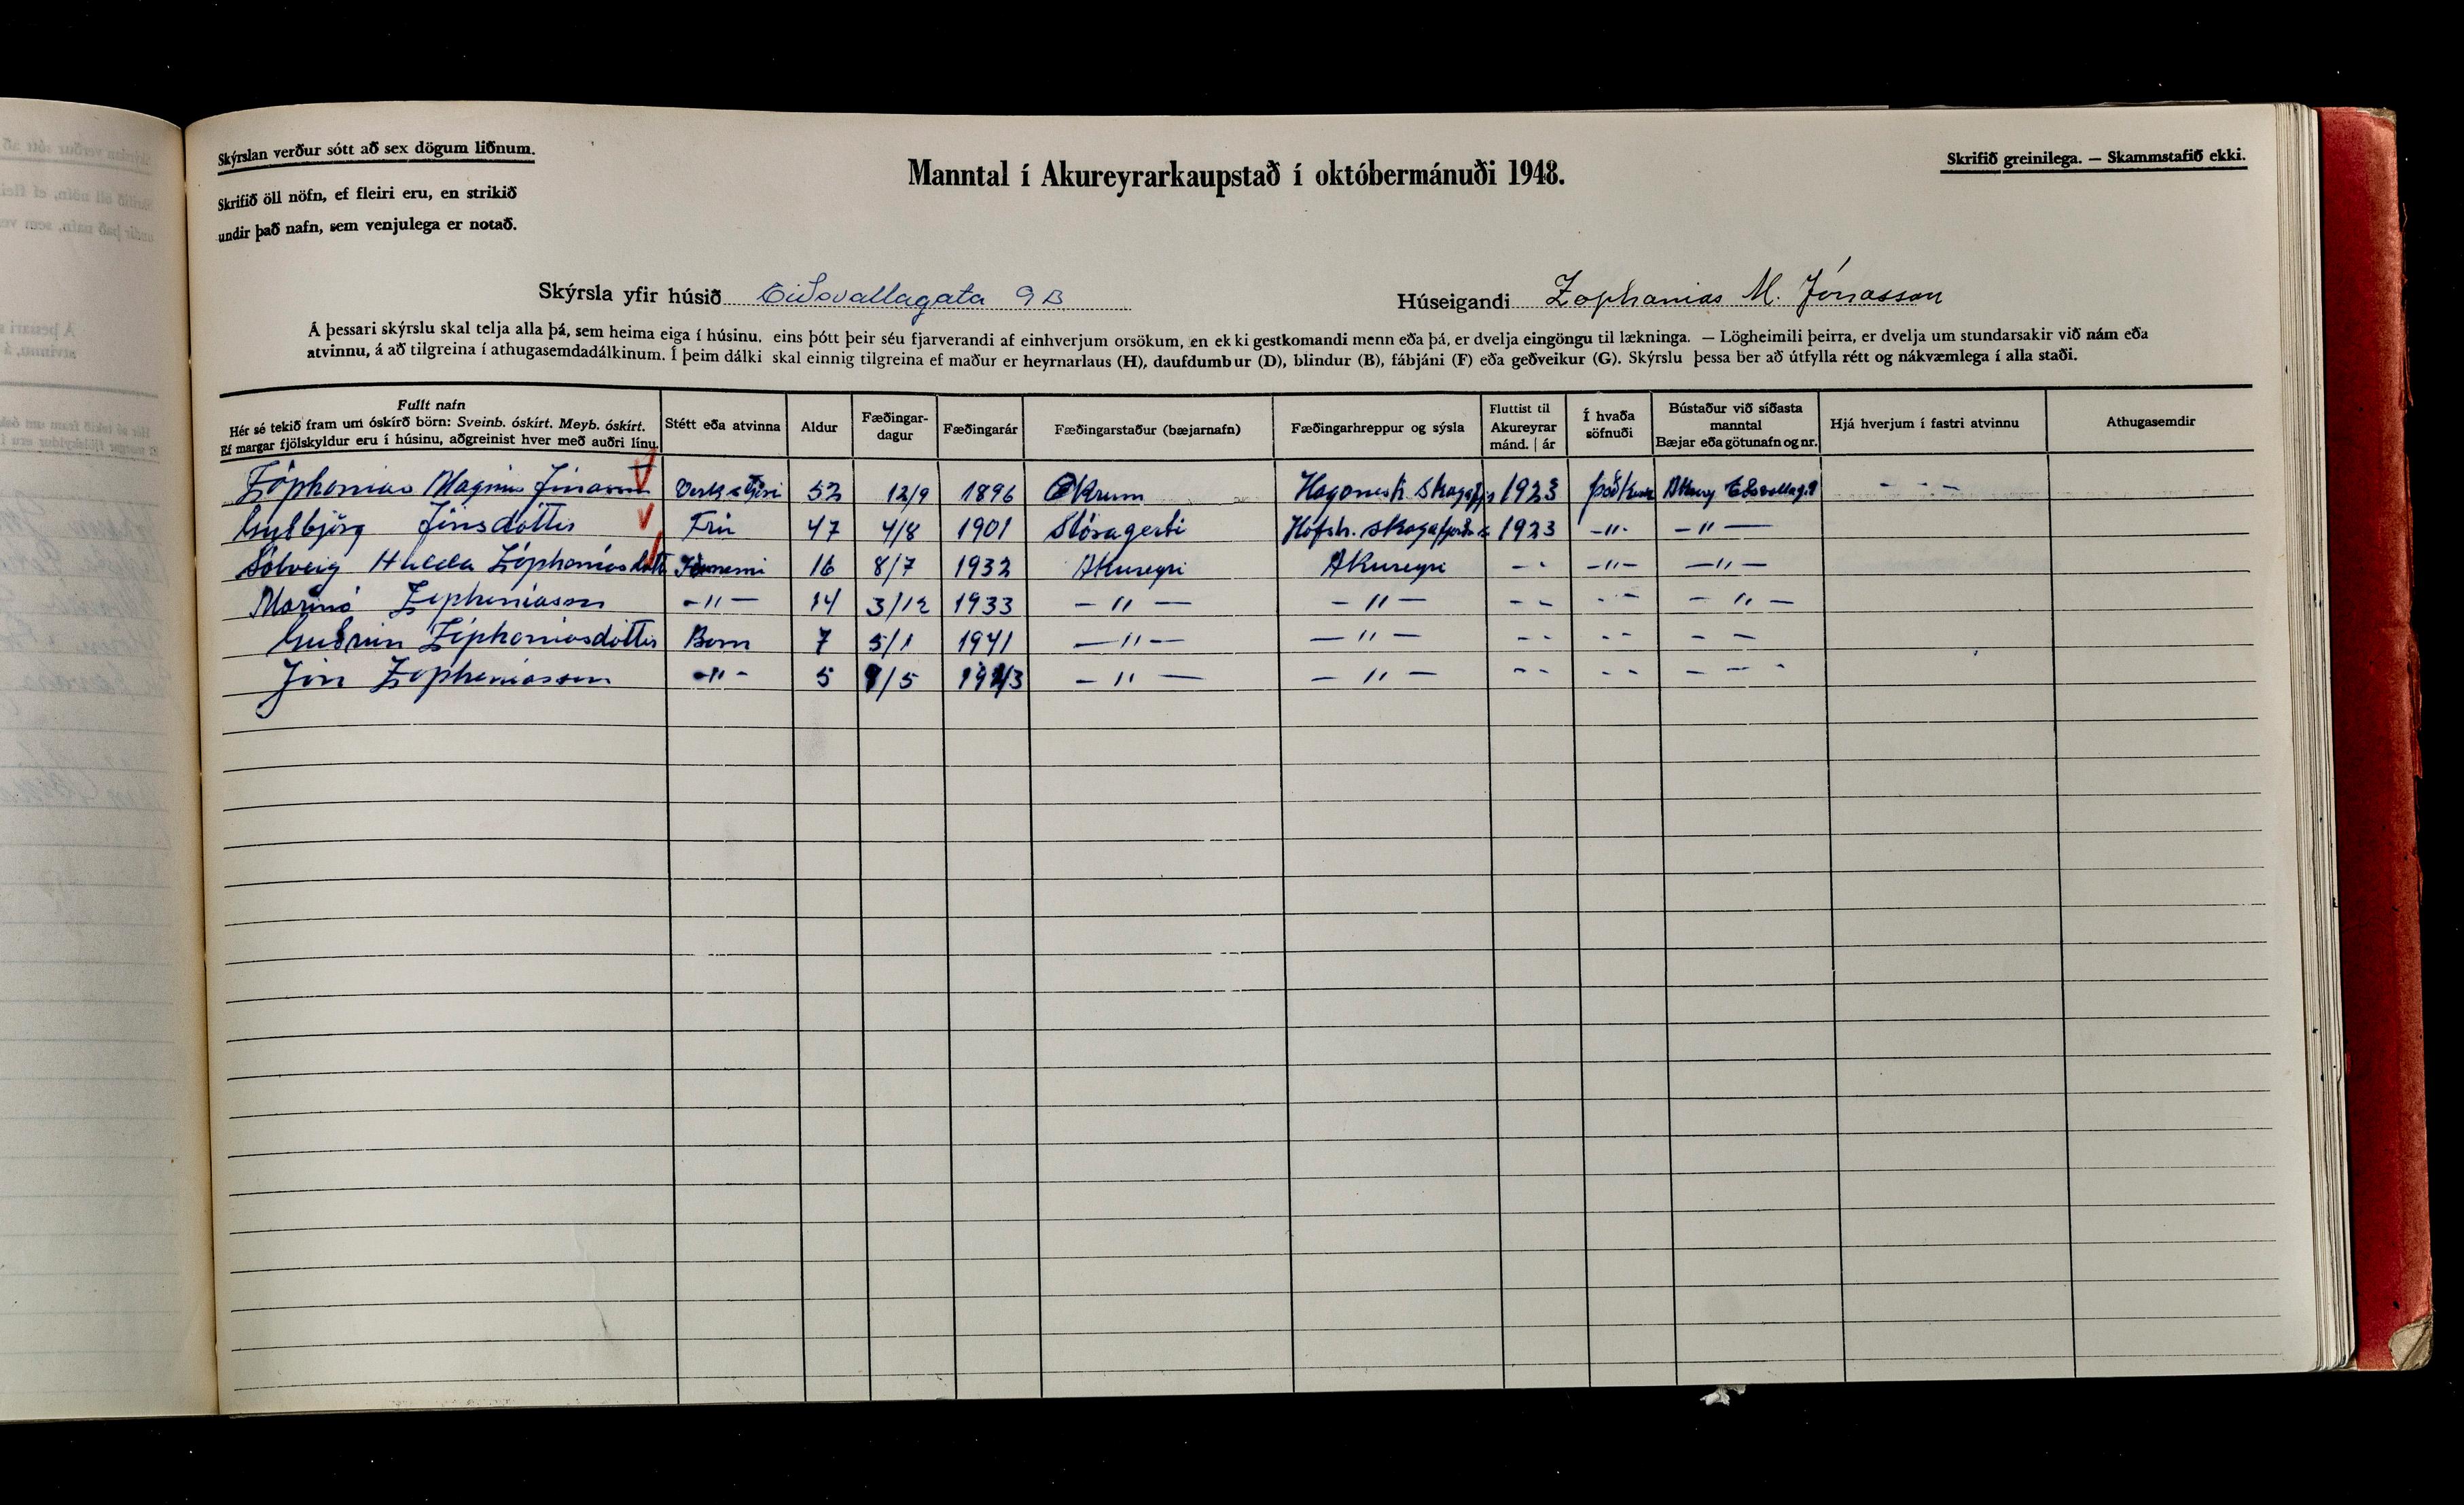 Skýrslan verður sótt að sex dögum liðnum.
Skrifið öll nöfn, ef fleiri eru, en strikið
undir það nafn, sem venjulega er notað.
Manntal í Akureyrarkaupstað í októbermánuði 1948.
Skrifið greinilega. — Skammstafið ekki.
Skýrsla yfir húsið Eiðsvallagata 9B
Húseigandi Zophanias M. Jónasson
Á þessari skýrslu skal telja alla þá, sem heima eiga í húsinu, eins þótt þeir séu fjarverandi af einhverjum orsökum, en ekki gestkomandi menn eða þá, er dvelja eingöngu til lækninga. — Lögheimili þeirra, er dvelja um stundarsakir við nám eða
atvinnu, á að tilgreina í athugasemdadálkinum. Í þeim dálki skal einnig tilgreina ef maður er heyrnarlaus (H), daufdumbur (D), blindur (B), fábjáni (F) eða geðveikur (G). Skýrslu þessa ber að útfylla rétt og nákvæmlega í alla staði.
Fullt nafn
Hér sé tekið fram um óskírð börn: Sveinb. óskírt. Meyb. óskírt.
Ef margar fjölskyldur eru í húsinu, aðgreinist hver með auðri línu.
Stétt eða atvinna
Aldur
Fæðingar-
dagur
Fæðingarár
Fæðingarstaður (bæjarnafn)
Fæðingarhreppur og sýsla
Fluttist til
Akureyrar
mánd. | ár
Í hvaða
söfnuði
Bústaður við síðasta
manntal
Bæjar eða götunafn og nr.
Hjá hverjum í fastri atvinnu
Athugasemdir
Zóphonias Magnús Jónasson Verkstjóri 52 12/9 1896 Ökrum 1923 - - -
Guðbjörg Jónsdóttir Frú 47 4/8 1901 Stóragerði Hofshr. Skagafjords 1923 -"- -"-
Sólveig Hulda Zóphoníasdótt 16 8/7 1932 Akureyri Akureyri - - -"- -"-
Marinó Zophoníasson -"- 14 3/12 1933 -"- -"- - - - - -"-
Guðrún Zóphoníasdóttir Barn 7 5/1 1941 -"- -"- - - - - - -
Jón Zophoníasson -"- 5 9/5 1943 -"- -"- - - - - - - -